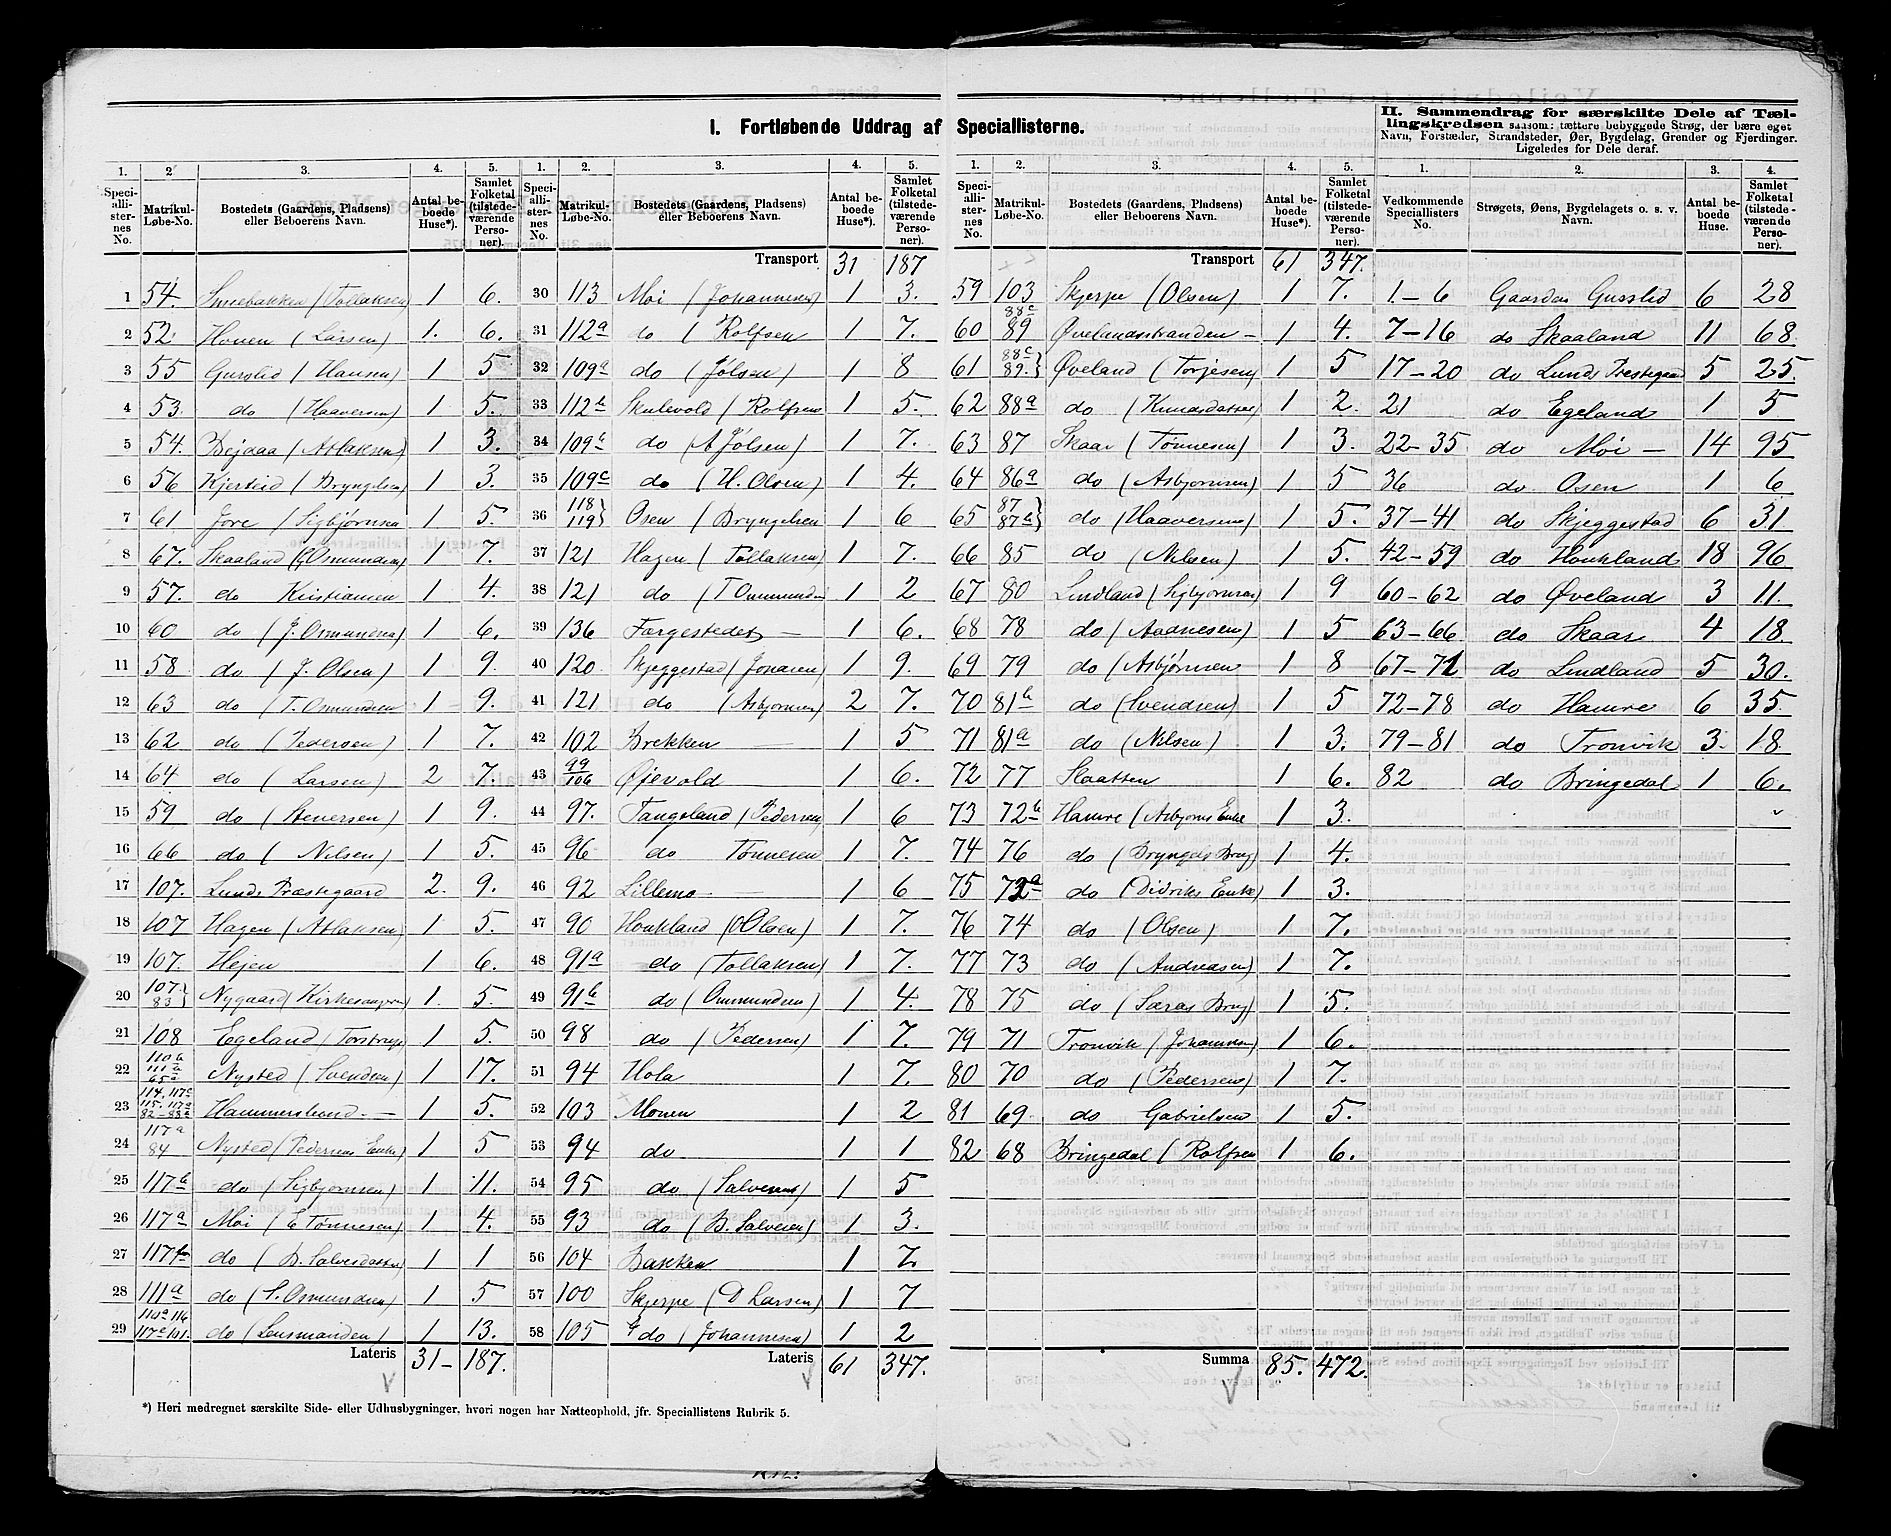 I. Fortløbende Uddrag af Speciallisterne.
1. 2 3. 4. 5.
Speciallisternes No. Matrikul-Løbe-No. Bostedets (Gaardens, Pladsens) eller Beboerens Navn. Antal beboede Huse*). Samlet Folketal (tilstedeværende Personer).
1 54. (Tollaksen) 1 6.
2 52 Hoven (Larsen) 1. 6.
3 55 Gurslid (Hansen) 1 5
4 53. do (Haaversen) 1 5.
5 54. Bejdaa (Atlaksen) 1 3.
6 56 (Bryngelsen) 1 3.
7 61 Jore (Sigbjørnsen 1 5.
8 67. Skaaland (Osmundsen) 1 7.
9 57. do Kristiansen 1 4.
10 60 do (J. Osmundsen) 1 6.
11 58 do (J. Olsen) 1 9.
12 63 do (T. Osmundsen 1 9.
13 62 do (Pedersen) 1 7.
14 64 do (Larsen) 2 7.
15 59 do (Steversen) 1 9.
16 66 do (Nilsen) 1 5.
17 107. Lunds Præstegaard 2. 9.
18 107 Hagen (Atlaksen) 1 5.
19 107. Hejen 1 6.
20 107. 83 Nygaard (Kirkesangeren 1. 5.
21 108 Egeland (Torstrup) 1 5.
22 110b 111b 65a Nysted (Svendsen) 1 17.
23 114. 117c 115. 117a 82-83a Hammerslund - 1 5.
24 117a 84 Nysted (Pedersens Enke) 1 5
25 117b do (Sigbjørnsen) 1 11.
26 117a Moi (E Tønnesen) 1 4.
27 do (B. Salvesdatter) 1 1
28 111a do (S. Osmundsen) 1 5
29 110a 116 117a 101. do (Lensmanden) 1 13.
Lateris 31- 187.
1. 2. 3. 4. 5.
Speciallisternes No. Matrikul-Løbe-No. Bostedets (Gaardens, Pladsens) eller Beboerens Navn. Antal beboede Huse*). Samlet Folketal (tilstedeværende Personer).
Transport 31 187
30 113 Moi (Johannesen) 1 3.
31 112a do (Rolfsen 1 7.
32 109a do (Jølsen) 1 8
33 112b Skulevold (Rolfsens 1 5.
34 109b do (A Jølsen) 1 7.
35 109c do (H. Olsen) 1 4.
36 118 119 Osen (Bryngelsen 1 6
37 121 Hagen (Tollaksen) 1 7.
38 121 do (T Ommunds- 1 2
39 136 Færgestedet - 1 6.
40 120. Skjeggestad (Jonasen) 1 9.
41 121 do (Asbjørnsen) 2 7.
42 102 Brekken 1 5
43 99 106 Øjevold 1 6.
44 97. Tangeland (Pedersen) 1 6
45 96 do Tønnesen 1 7.
46 92 Lillemo 1 6
47 90 Houkland (O Olsen) 1 7.
48 91a do (Tollaksen) 1 7.
49 91b do (Ommundsen) 1 4.
50 98 do (Pedersen) 1 7.
51 94 Hola 1 7.
52 103 Monen 1 2
53 94 do 1 1
54 95 do (Salvesens) 1 5
55 93 do (B. Salvesen) 1 3.
56 104 Bakken 1 7.
57 100 Skjerpe (D Larsen) 1 7
58 105 do (Johannesen) 1 2
Lateris 61 347.
*) Heri medregnet særskilte Side- eller Udhusbygninger, hvori nogen har Natteophold, jfr. Speciallistens Rubrik 5.
1. 2. 3. 4. 5.
Speciallisternes No. Matrikul-Løbe-No. Bostedets (Gaardens, Pladsens) eller Beboerens Navn. Antal beboede Huse*). Samlet Folketal (tilstedeværende Personer).
Transport 61 347.
59 103 Skjerpe (Olsen) 1 7.
60 88c 89 Øvelandsstranden - 1 4.
61 88c 89. Øveland (Torjesen) 1 5
62 88a do (Knudsdatter) 1 2.
63 87 Skaar (Tønnesen) 1 3.
64 86a do (Asbjørnsen) 1 5
65 87 87b do (Haaversens) 1 5.
66 85 do (Nilsen) 1 5.
67 80 Lindland (Sigbjørnsen) 1 9
68 78 do (Aadnesens) 1 5
69 79 do (Asbjørnsen 1 8
70 81b do (Svendsen) 1 5
71 81a do (Nilsen) 1 3.
72 77 Slaatten 1 6.
73 72b Hamre (Asbjørns Enke 1 3.
74 76 do (Bryngels Brug) 1 4.
75 72a do (Didriks Enke) 1 3.
76 74 do (Olsen) 1 7.
77 73 do (Andreasen) 1 7.
78 75 do (Saras Brug) 1 5.
79 71 Tronvik (Johannesen) 1 6.
80 70 do (Pedersens) 1 7.
81 69. do Gabrielsen 1 5.
82 68 Bringedal (Rolfsen 1 6.
Summa 85. 472.
II. Sammendrag for særskilte Dele af Tællingskredsen saasom: tættere bebyggede Strøg, der bære eget Navn, Forstæder, Strandsteder, Øer, Bygdelag, Grender og Fjerdinger. Ligeledes for Dele deraf.
1. 2. 3. 4.
Vedkommende Speciallisters No. Strøgets, Øens, Bygdelagets o. s. v. Navn. Antal beboede Huse. Samlet Folketal (tilstedeværende Personer).
1-6 Gaarden Gurslid 6 28
7-16 do Skaaland 11 68.
17-20 do Lunds Prestegaard 5 25.
21 do Egeland 1 5
22-35 do Moi - 14 95
36 do Osen 1 6
37-41 do Skjeggestad 6 31
42-59 do Houkland 18 96
60-62 do Øveland 3 11.
63-66 do Skaar 4 18
67-71 do Lindland 5 30.
72-78 do Hamre 6 35.
79-81 do Tronvik 3. 18.
82 do Bringedal 1 6.